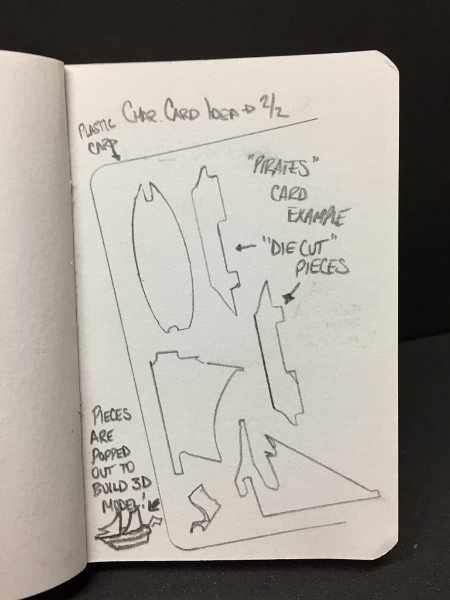 CHAR. CARD IDEA → 2/2
PLASTIC
CARD
"PIRATES"
CARD
EXAMPLE
"DIE CUT"
PIECES
PIECES
ARE
POPPED
OUT TO
BUILD 3D
MODEL!